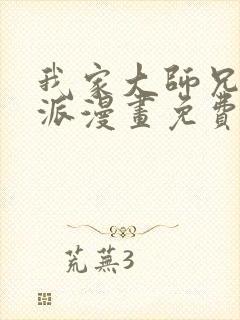 我家大師兄
派漫畫免費
荒蕪3